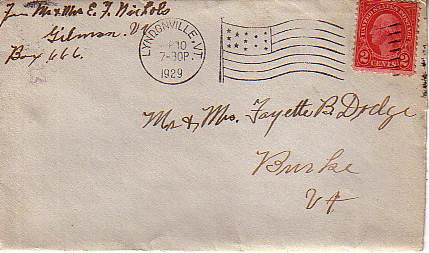 From Mr & Mrs E. F. Nichols
Gilman, Vt
Box 666.
LYNDONVILLE, VT.
10
7-30P.
1929
UNITED STATES POSTAGE
2 CENTS 2
Mr & Mrs. Fayette B. Dodge
Burke
Vt